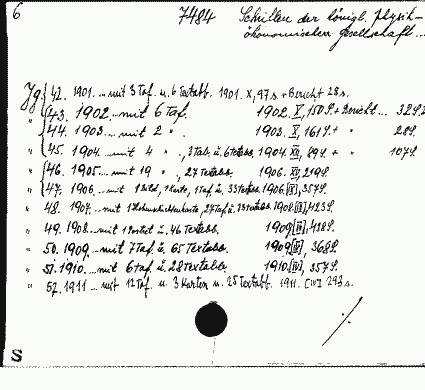 6 7484 Schriften der königl. physik-
ökonomischen Gesellschaft...
Jg. 42. 1901...mit 3 Taf. u. 6 Textabb. 1901. X, 97 s. + Bericht 28 s.
" 43. 1902...mit 6 Taf. 1902. X, 150 s. + Bericht...
" 44. 1903...mit 2 " . 1903. X, 161 s. + " 28 s.
" 45. 1904...mit 4 " ., 3 Tab. u. 6 Textabb. 1904. 89 s. + " 107 s.
" 46. 1905...mit 19 " , 27 Textabb. 1906. 219 s.
" 47. 1906...mit 1 Bild, 1 Karte, 1 Taf. u. 33 Textabb. 1906. 357 s.
" 48. 1907...mit 27 Taf. u. Textabb. 1908. 423 s.
" 49. 1908...mit u. 46 Textabb. 1909 428 s.
" 50. 1909...mit 7 Taf. u. 65 Textabb. 1909 368 s.
" 51. 1910...mit 6 Taf. u. 28 Textabb. 1910. [IV], 357 s.
" 52. 1911...mit 12 Taf. u. 3 Karten u. 25 Textabb. 1911. [IV] 293 s.
./.
S